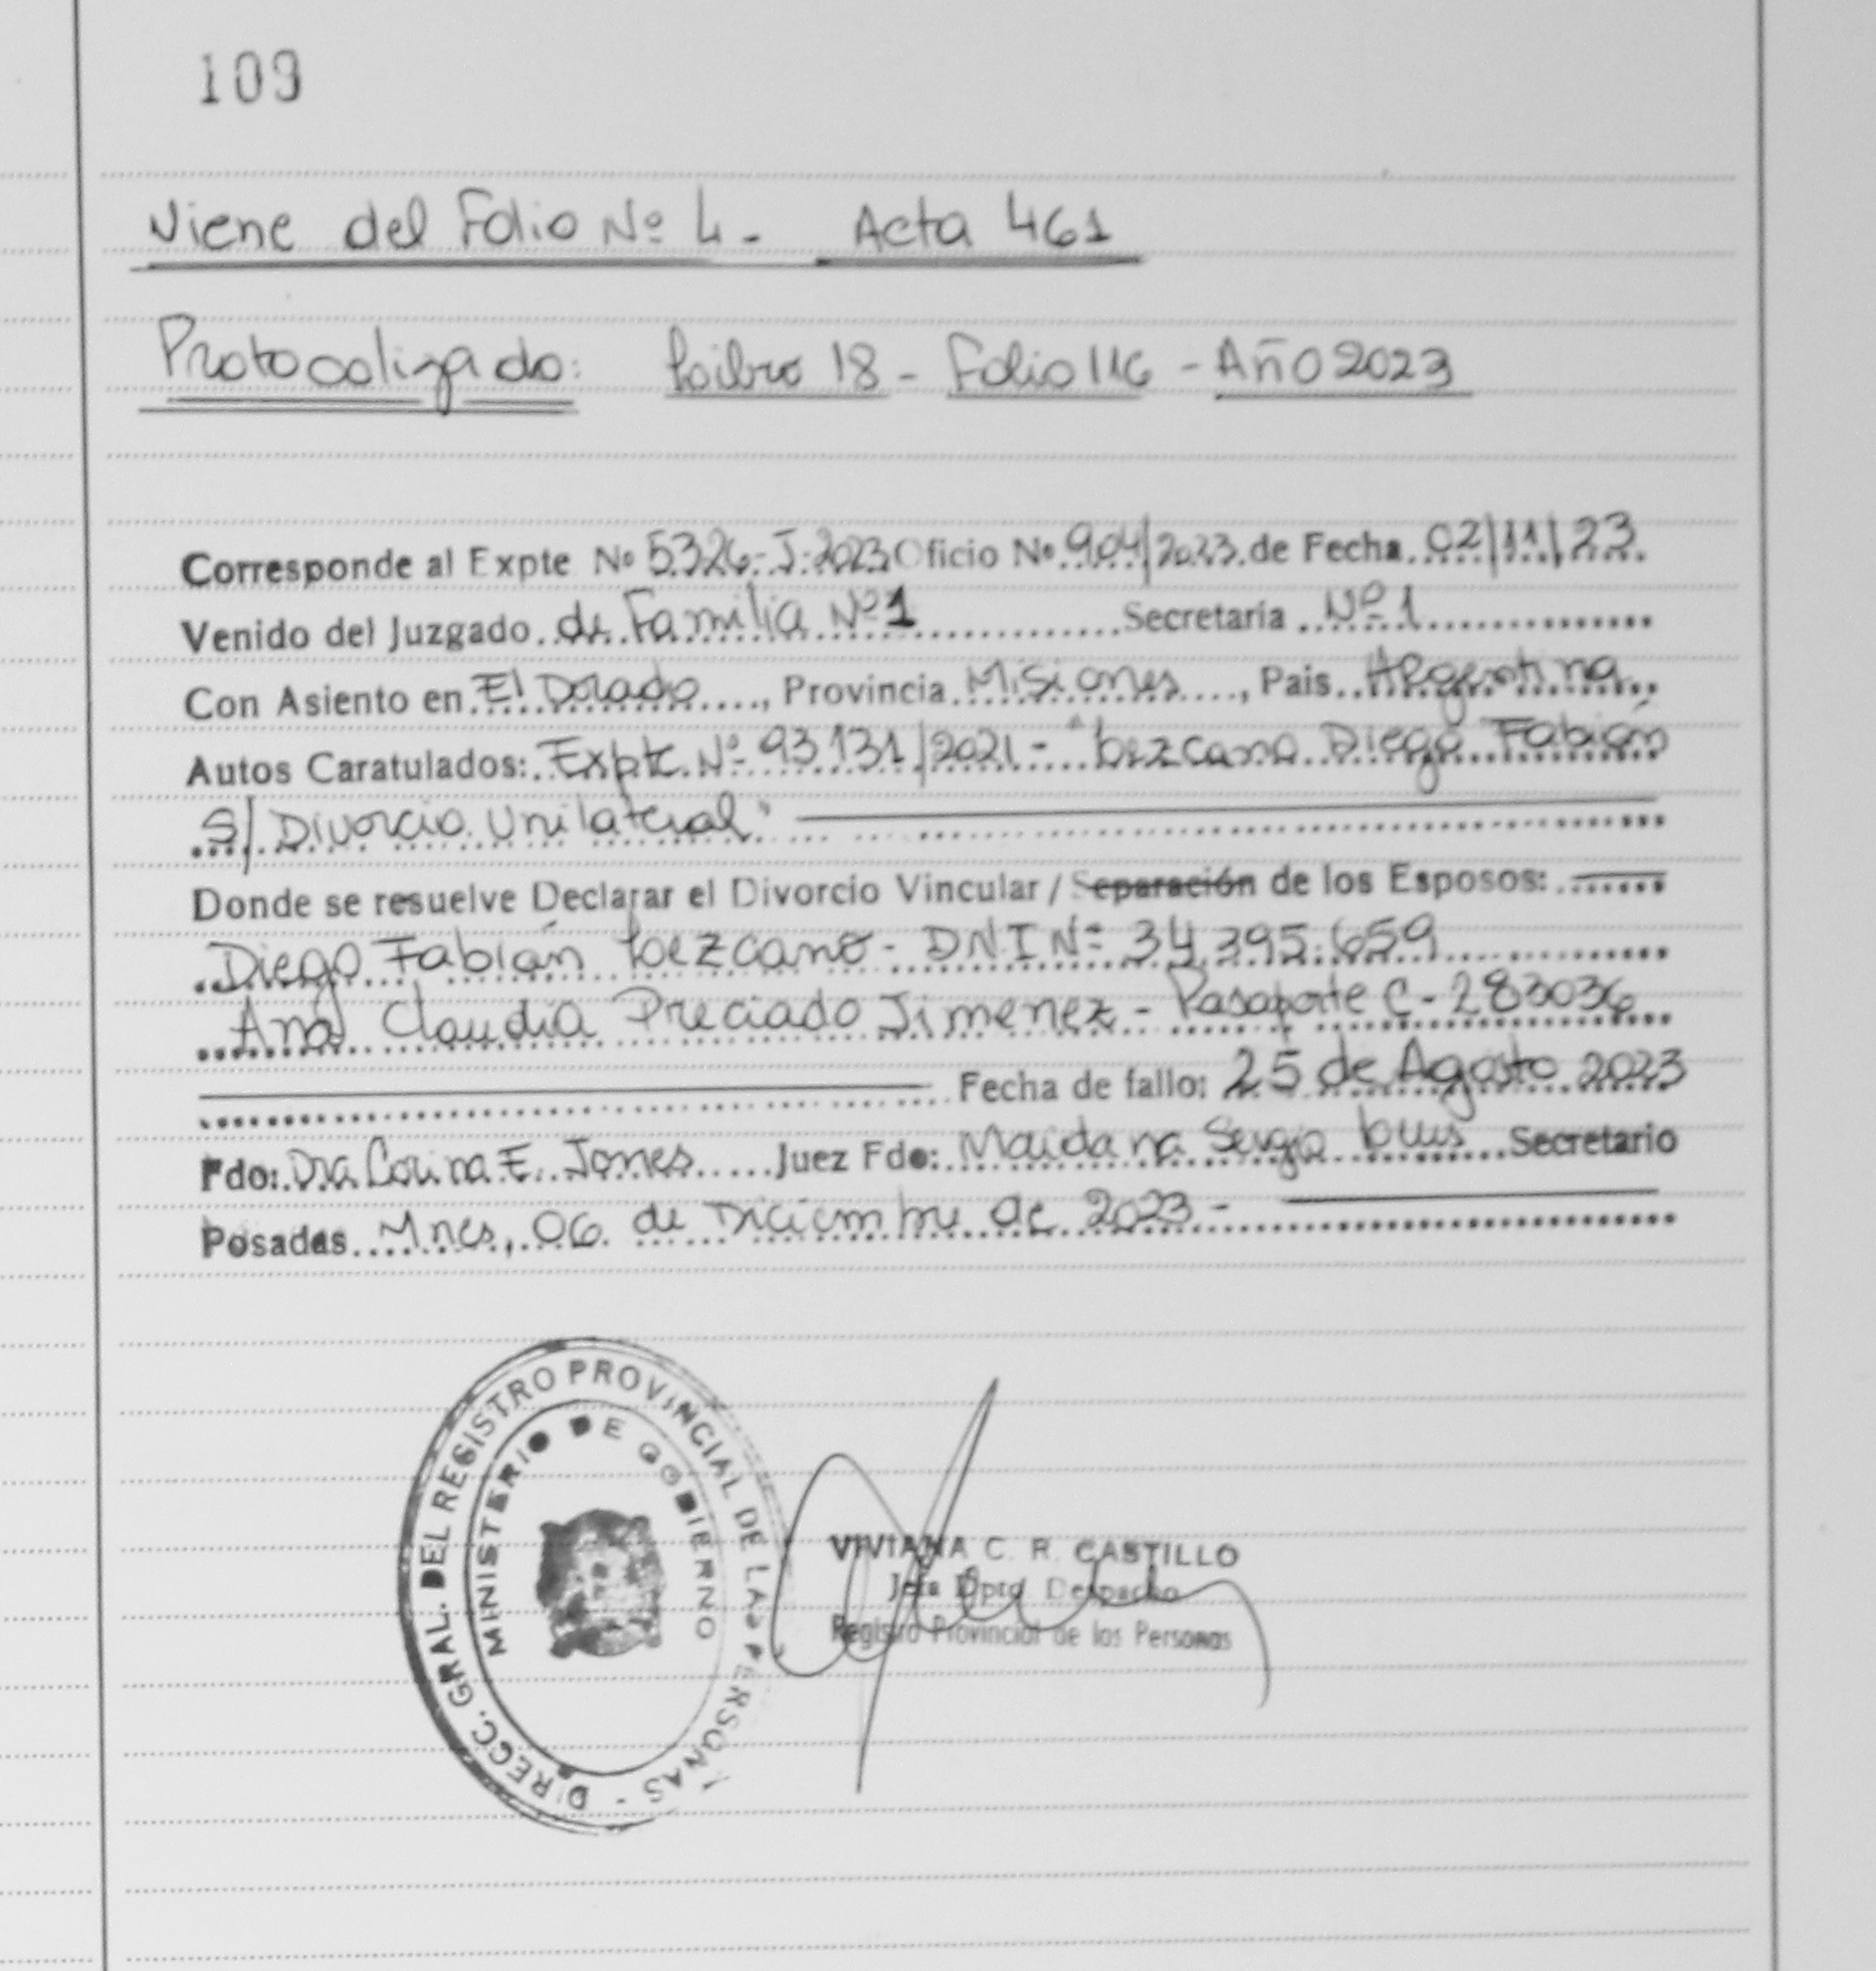 109
Viene del Folio Nº 4. - Acta 461
Protocolizado: Libro 18 - Folio 116 - Año 2023
Corresponde al Expte Nº 5326-J-2023 Oficio Nº 904/2023 de Fecha 02/11/23
Venido del Juzgado de Familia Nº 1 Secretaría Nº 1
Con Asiento en El Dorado, Provincia Misiones, Pais Argentina
Autos Caratulados: Expte. Nº 93131/2021 - "Lezcano Diego Fabián
S/ Divorcio Unilateral"
Donde se resuelve Declarar el Divorcio Vincular / Separación de los Esposos:
Diego Fabián Lezcano - DNI Nº 34.395.659
Ana Claudia Preciado Jimenez - Pasaporte C - 283036
Fecha de fallo: 25 de Agosto 2023
Fdo: Dra Corina E. Jones Juez Fdo: Maidana Sergio Luis Secretario
Posadas Mnes, 06 de Diciembre de 2023 -
DIRECC. GRAL. DEL REGISTRO PROVINCIAL DE LAS PERSONAS -
MINISTERIO DE GOBIERNO
VIVIANA C. R. CASTILLO
Jefa Dpto Despacho
Registro Provincial de las Personas